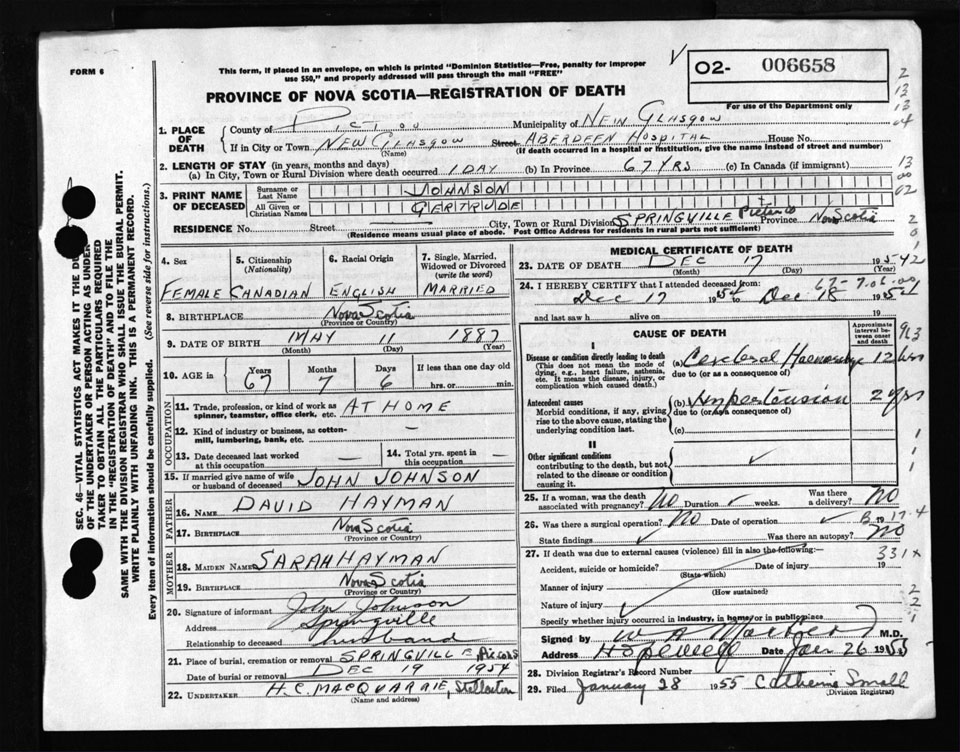 FORM 6
This form, if placed in an envelope, on which is printed "Dominion Statistics—Free, penalty for improper
use $50," and properly addressed will pass through the mail "FREE"
02- 006658
For use of the Department only
PROVINCE OF NOVA SCOTIA—REGISTRATION OF DEATH
1. PLACE OF DEATH
County of PICTOU Municipality of NEW GLASGOW
If in City or Town, NEW GLASGOW Street ABERDEEN HOSPITAL House No.
(Name) (If death occurred in a hospital or institution, give the name instead of street and number)
2. LENGTH OF STAY (in years, months and days)
(a) In City, Town or Rural Division where death occurred 1 DAY (b) In Province 67 YRS (c) In Canada (if immigrant)
3. PRINT NAME OF DECEASED
Surname or Last Name JOHNSON
All Given or Christian Names GERTRUDE
RESIDENCE No. Street City, Town or Rural Division SPRINGVILLE Pictou Co Province Nova Scotia
(Residence means usual place of abode. Post Office Address for residents in rural parts not sufficient)
4. Sex
FEMALE
5. Citizenship
(Nationality)
CANADIAN
6. Racial Origin
ENGLISH
7. Single, Married, Widowed or Divorced
(write the word)
MARRIED
8. BIRTHPLACE Nova Scotia
(Province or Country)
9. DATE OF BIRTH MAY 11 1887
(Month) (Day) (Year)
10. AGE in
Years 67 Months 7 Days 6
If less than one day old
hrs. or min.
OCCUPATION
11. Trade, profession, or kind of work as spinner, teamster, office clerk, etc. AT HOME
12. Kind of industry or business, as cotton-mill, lumbering, bank, etc. —
13. Date deceased last worked at this occupation —
14. Total yrs. spent in this occupation —
15. If married give name of wife or husband of deceased JOHN JOHNSON
FATHER
16. NAME DAVID HAYMAN
17. BIRTHPLACE Nova Scotia
(Province or Country)
MOTHER
18. MAIDEN NAME SARAH HAYMAN
19. BIRTHPLACE Nova Scotia
(Province or Country)
20. Signature of informant John Johnson
Address Springville
Relationship to deceased husband
21. Place of burial, cremation or removal SPRINGVILLE,
Date of burial or removal DEC 19 1954
22. UNDERTAKER H.C. MACQUARRIE, Stellarton
(Name and address)
MEDICAL CERTIFICATE OF DEATH
23. DATE OF DEATH DEC 17 195
(Month) (Day) (Year)
24. I HEREBY CERTIFY that I attended deceased from
Dec 17 1954 to Dec 18 1954
and last saw h alive on 19
CAUSE OF DEATH
Approximate interval between onset and death
I
Disease or condition directly leading to death
(This does not mean the mode of dying, e.g., heart failure, asthenia, etc. It means the disease, injury, or complication which caused death.)
(a) Cerebral Haemorrhage 12 hrs
due to (or as a consequence of)
Antecedent causes
Morbid conditions, if any, giving rise to the above cause, stating the underlying condition last.
(b) Hypertension 2 yrs
due to (or as a consequence of)
(c)
II
Other significant conditions
contributing to the death, but not related to the disease or condition causing it.
25. If a woman, was the death associated with pregnancy? NO Duration weeks. Was there a delivery? NO
26. Was there a surgical operation? NO Date of operation 19
State findings Was there an autopsy? NO
27. If death was due to external causes (violence) fill in also the following:—
Accident, suicide or homicide? Date of injury 19
(State which)
Manner of injury
(How sustained)
Nature of injury
Specify whether injury occurred in industry, in home or in public place
Signed by M.D.
Address Hopewell Date Jan 26 1955
28. Division Registrar's Record Number
29. Filed January 28 1955 Catherine Small
(Division Registrar)
SEC. 46—VITAL STATISTICS ACT MAKES IT THE
OF THE UNDERTAKER OR PERSON ACTING AS UNDER-
TAKER TO OBTAIN ALL THE PARTICULARS REQUIRED
IN THE "REGISTRATION OF DEATH" AND TO FILE THE
SAME WITH THE DIVISION REGISTRAR WHO SHALL ISSUE THE BURIAL PERMIT.
WRITE PLAINLY WITH UNFADING INK. THIS IS A PERMANENT RECORD.
Every item of information should be carefully supplied. (See reverse side for instructions.)